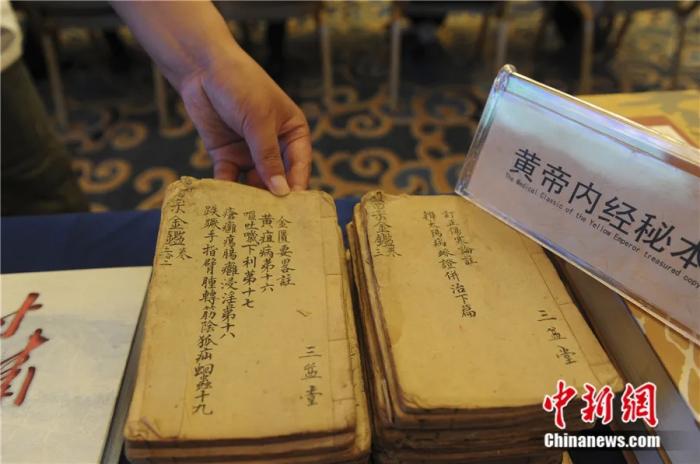 金匱要畧註
黄疸病第十六
嘔吐噦下利第十七
瘡癰瘍腸癰浸淫第十八
趺蹶手指臂腫轉筋陰狐疝蚘蟲十九
三益堂
金鑑
訂正傷寒論註
三益堂
金鑑
黄帝内经秘本
The Medical Classic of the Yellow Emperor treasured copy
中新网
Chinanews.com